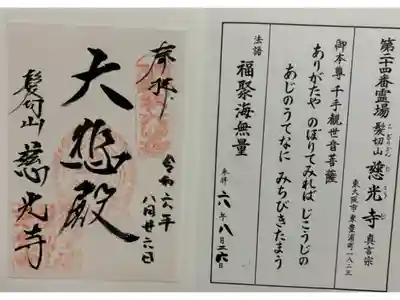 奉拝
大悲殿
髪切山 慈光寺
令和六年
八月廿六日
第二十四番霊場 髪切山 慈光寺 真言宗
こぎりさん じこうじ
東大阪市東豊浦町一八ー三
御本尊 千手観世音菩薩
ありがたや のぼりてみれば じこうじの
あじのうてなに みちびきたまう
法語 福聚海無量
参拝 六年 八月 二六日